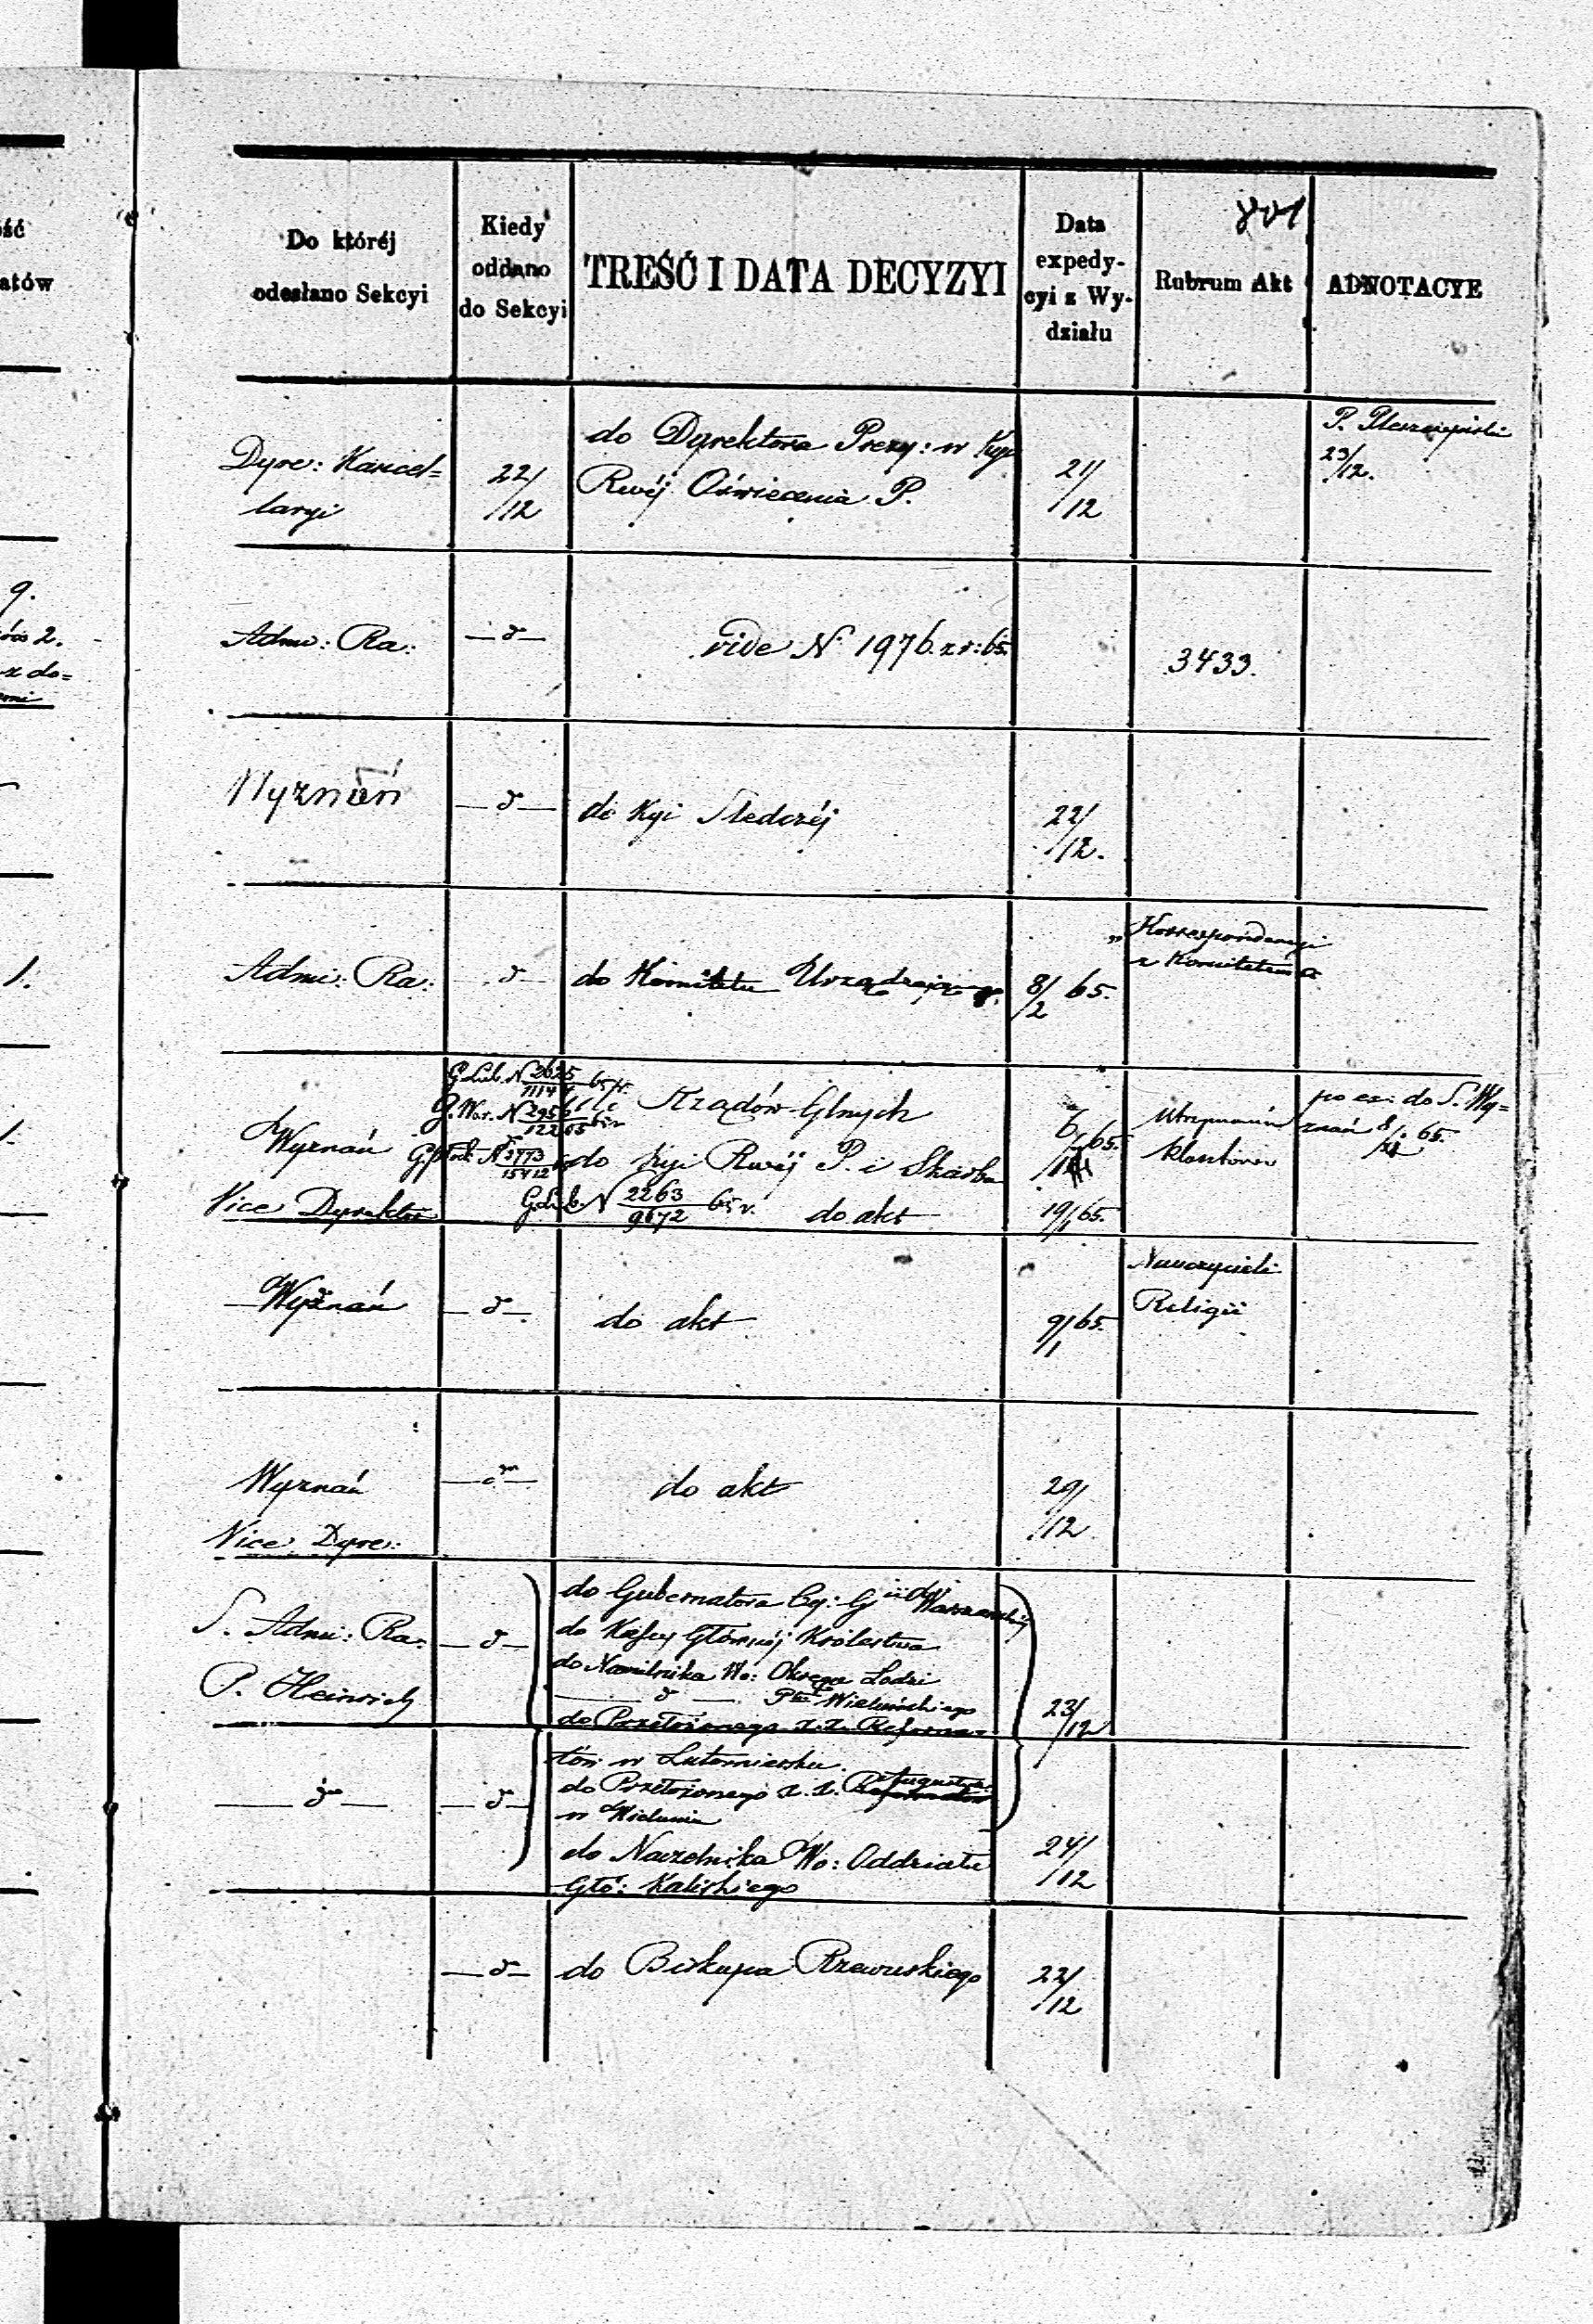 ść
atów
9.
2.
z do=
1.
801
Do któréj
odesłano Sekcyi
Kiedy
oddano
do Sekcyi
TREŚĆ I DATA DECYZYI
Data
expedy-
cyi z Wy-
działu
Rubrum Akt
ADNOTACYE
Dyre: Kancel=
laryi
22/12
do Dyrektora Prezy: w Kyi
Rwéj Oświecenia P.
21/12
P.
23/12.
Admi: Ra:
—d—
vide N. 1976. z r: 65.
3433.
Wyznań
—d—
do Kyi Śledczéj
22/12.
Admi: Ra:
—d—
do Komitetu Urządzające.
8/2 65.
„Korrespondencyi
z Komitetem
Wyznań
Vice Dyrektor
G. Lub. N 2625
G. War. N
Rządów Glnych
do Kyi Rwéj P. i Skarbu
G. Lub. N 2263/9672 65 r. do akt
19/1 65.
Utrzymanie
klasztorów
po ex: do S. Wy=
znań 65.
Wyznań
—d—
do akt
9/1 65.
Nauczycieli
Religii
Wyznań
Vice Dyre:
—d—
do akt
29/12
S. Admi: Ra:
P. Heinrich
—d—
do Gubernatora Cy: G Warszawskiej
do Kassy Głównéj Królestwa
do Naczelnika Wo: Okręgu Łodzi
—d— Ptu Wieluńskiego
do Przełożonego Z. Z. Reforma=
tów w Lutomiersku.
23/12
—d—
—d—
do Przełożonego Z. Z. Augustya:
w Wieluniu
do Naczelnika Wo: Oddziału
Głó: Kaliskiego
24/12
—d—
do Biskupa Rzewuskiego
22/12